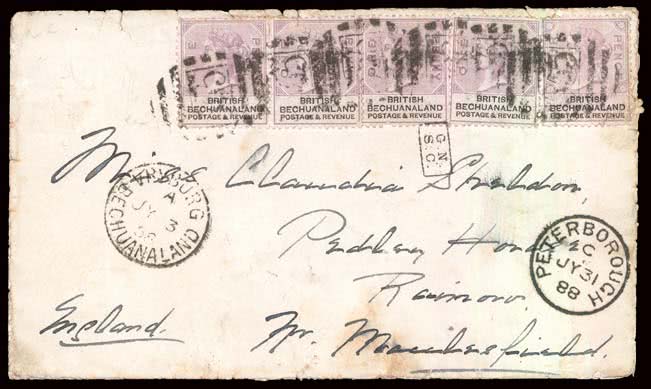 BRITISH BECHUANALAND POSTAGE & REVENUE
BRITISH BECHUANALAND POSTAGE & REVENUE
BRITISH BECHUANALAND POSTAGE & REVENUE
BRITISH BECHUANALAND POSTAGE & REVENUE
BRITISH BECHUANALAND POSTAGE & REVENUE
G.N.
S.C.
Sheldon,
Pedley House
Rainow.
Nr. Macclesfield.
England.
VRYBURG
A
JY 3
BECHUANALAND
PETERBOROUGH
C
JY 31
88